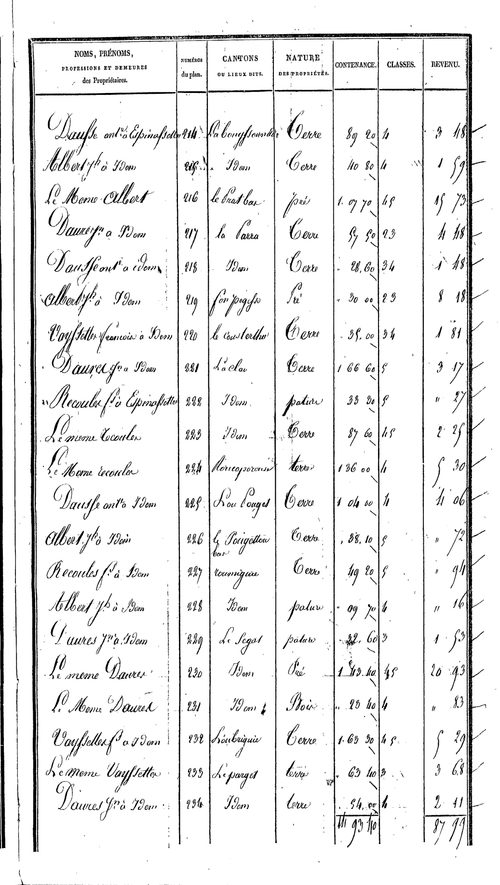 NOMS, PRÉNOMS, PROFESSIONS ET DEMEURES des Propriétaires. NUMÉROS du plan. CANTONS OU LIEUX DITS. NATURE DES PROPRIÉTÉS. CONTENANCE. CLASSES. REVENU.
Dausse ant.e à Espinassette 214 Terre 89 20 4 3 48
Albert jh à Idem 215 Idem Terre 40 80 4 1 59
Le Meme Albert 216 le Prat bas pré 1 07 70 45 15 73
Daures jn à Idem 217 la Parra Terre 57 50 23 4 48
Dausse ant à idem 218 Idem Terre 28 60 34 1 48
Albert jh à Idem 219 Pré 30 00 23 8 18
Vayssettes francois à Idem 220 Terre 35 00 34 1 81
Daures jn à Idem 221 La clau Terre 1 66 60 5 3 17
Recoules fs à Espinassettes 222 Idem pature 33 20 5 " 27
Le meme recoules 223 Idem Terre 87 60 45 2 25
Le Meme recoules 224 terre 1 36 00 4 5 30
Dausse ant à Idem 225 Lou Pouget Terre 1 04 00 4 4 06
Albert jh à Idem 226 le Pouigettou bas Terre 38 10 5 " 72
Recoules fs à Idem 227 Terre 49 20 5 " 94
Albert jh à Idem 228 Idem pature 09 70 4 " 16
Daures jn à Idem 229 Le Segas pature 22 60 3 1 53
Le meme Daures 230 Idem Pré 1 43 40 45 20 93
Le Meme Daures 231 Idem Bois 23 40 4 " 23
Vayssettes fs à Idem 232 Terre 1 63 30 45 5 29
Le meme Vayssettes 233 Le parget terre 63 40 3 3 68
Daures jn à Idem 234 Idem terre 54 00 4 2 11
93 40 87 99